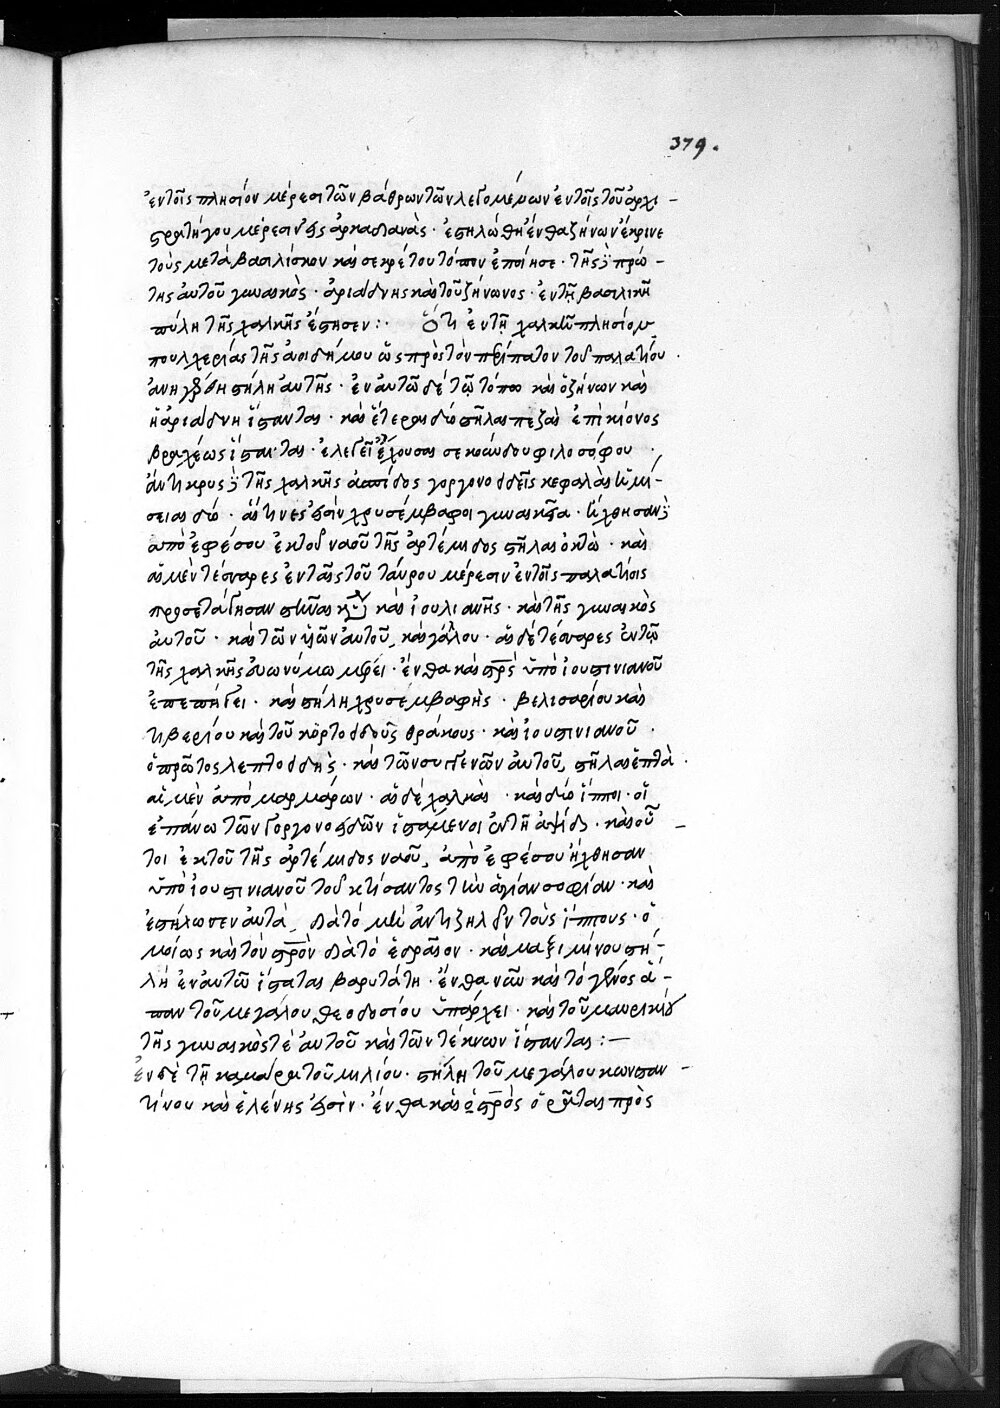 379.
ἐν τοῖς πλησίον μέρεσι τῶν βάθρων τῶν λεγομένων ἐν τοῖς τοῦ ἀρχι-
στρατήγου μέρεσιν εἰς ἀρκαδιανὰς· ἐστηλώθη ἔνθα ζήνων ἔκρινε
τοὺς μετὰ βασιλίσκον καὶ σεκρέτου τόπον ἐποίησε· τῆς δὲ πρώ-
της αὐτοῦ γυναικὸς· ἀριάδνης καὶ τοῦ ζήνωνος· ἐν τῇ βασιλικῇ
πύλῃ τῆς χαλκῆς ἔστησεν:· Ὅτι ἐν τῇ χαλκῇ πλησίον
πουλχερίας τῆς ἀοιδήμου ὡς πρὸς τὸν περίπατον τοῦ παλατίου·
ἀνηγέρθη στήλη αὐτῆς· ἐν αὐτῶ δὲ τῷ τόπω καὶ ὁ ζήνων καὶ
ἡ ἀριάδνη ἵστανται· καὶ ἕτεραι δύο στῆλαι πεζαὶ ἐπὶ κίονος
βραχέως ἵστανται· ἐλεγεῖα ἔχουσαι σεκούνδου φιλοσόφου·
ἄντικρυς δὲ τῆς χαλκῆς ἀψίδος γοργονοειδεῖς κεφαλαὶ ἡμί-
σειαι δύο· αἵτινές εἰσιν χρυσέμβαφοι γυναικεῖαι· ἤχθησαν δὲ
ἀπὸ ἐφέσου ἐκ τοῦ ναοῦ τῆς ἀρτέμιδος στῆλαι ὀκτὼ· καὶ
αἱ μὲν τέσσαρες ἐν ταῖς τοῦ ταύρου μέρεσιν ἐν τοῖς παλατίοις
καὶ ἰουλιανῆς· καὶ τῆς γυναικὸς
αὐτοῦ· καὶ τῶν υἱῶν αὐτοῦ, καὶ γάλλου· αἱ δὲ τέσσαρες ἐν τῷ
τῆς χαλκῆς εὐωνύμω μέρει· ἔνθα καὶ σταυρὸς ὑπὸ ἰουστινιανοῦ
ἐπεπήγει· καὶ στήλη χρυσέμβαφὴς· βελισαρίου καὶ
τιβερίου καὶ τοῦ κορτοειδοῦς θρᾳκους· καὶ ἰουστινιανοῦ·
ὁ πρῶτος λεπτοειδὴς· καὶ τῶν συγγενῶν αὐτοῦ, στῆλαι ἑπτὰ·
αἱ μὲν ἀπὸ μαρμάρων· αἱ δὲ χαλκαῖ· καὶ δύο ἵπποι· οἵ
ἐπάνω τῶν γοργονοειδῶν ἱστάμενοι ἐν τῇ ἀψίδι· καὶ οὗ-
τοι ἐκ τοῦ τῆς ἀρτέμιδος ναοῦ, ἀπὸ ἐφέσου ἤχθησαν
ὑπὸ ἰουστινιανοῦ τοῦ κτίσαντος τὴν ἁγίαν σοφίαν· καὶ
ἐστήλωσεν αὐτὰ διὰ τὸ μὴ ἀντιζηλεῖν τοὺς ἵππους· ὁ
μοίως καὶ τὸν σταυρὸν διὰ τὸ ἑδραῖον· καὶ μαξιμίνου στή-
λη ἐν αὐτῶ ἵσταται βαρυτάτη· ἔνθα νῶ καὶ τὸ γένος ἅ-
παν τοῦ μεγάλου θεοδοσίου ὑπάρχει· καὶ τοῦ μαυρικίου
τῆς γυναικὸς τὲ αὐτοῦ καὶ τῶν τέκνων ἵστανται:—
ἐν δὲ τῇ καμάρᾳ τοῦ μιλίου· στήλη τοῦ μεγάλου κωνσταν-
τίνου καὶ ἑλένης εἰσὶν· ἔνθα καὶ ὁ σταυρὸς ὁρᾶται πρὸς